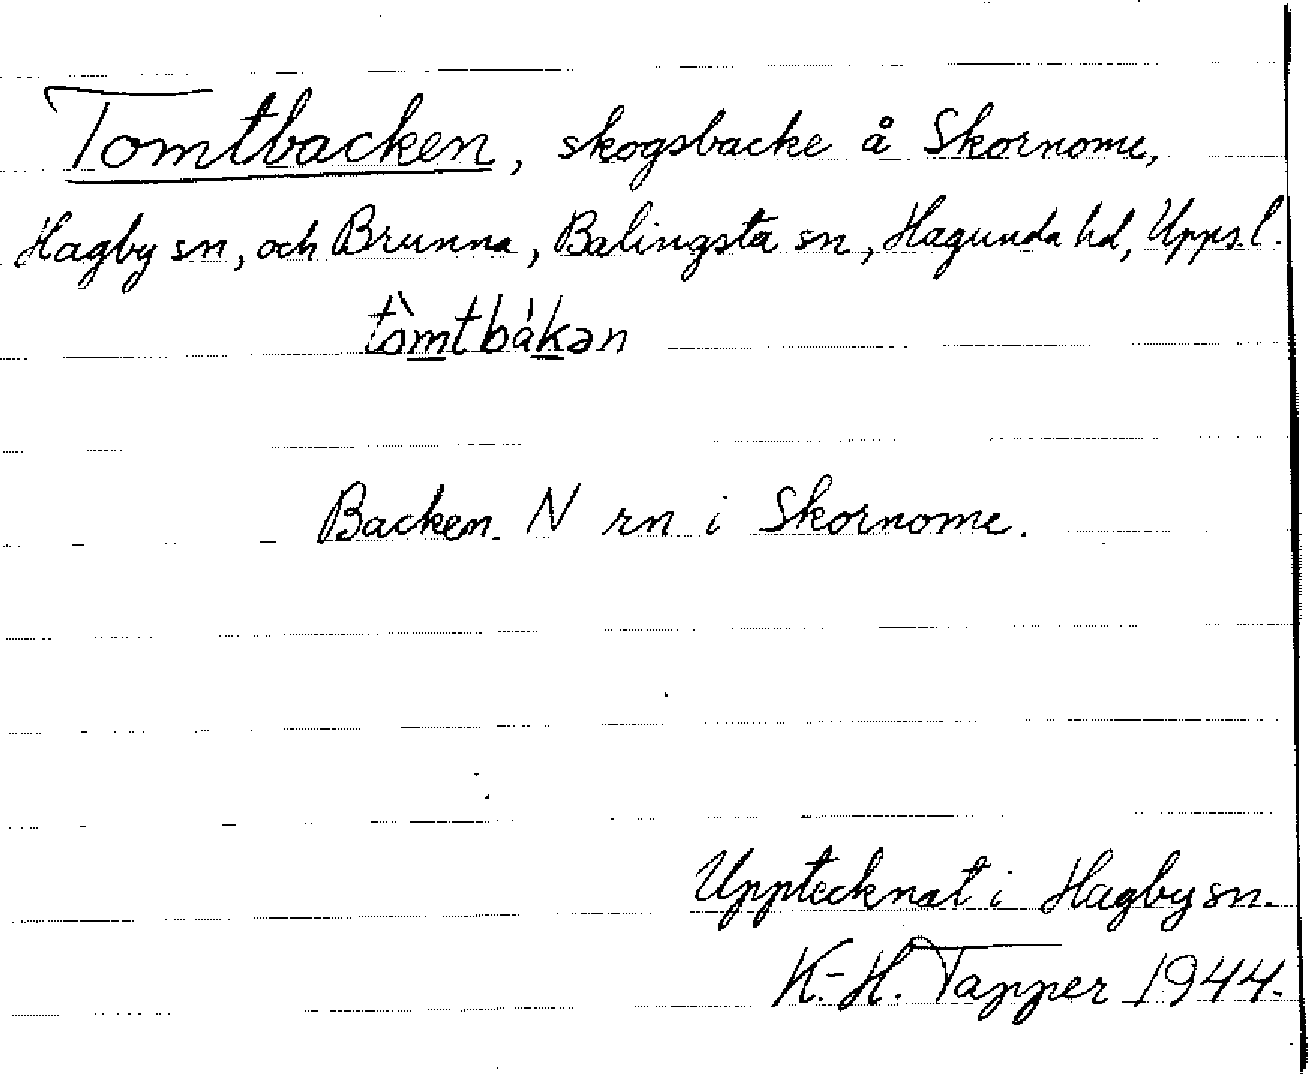 Tomtbacken, skogsbacke å Skornome,
Hagby sn, och Brunna, Balingsta sn, Hagunda hd, Upps.l.
tòmtbákən
Backen N rn i Skornome.
Upptecknat i Hagby sn.
K.-H. Tapper 1944.